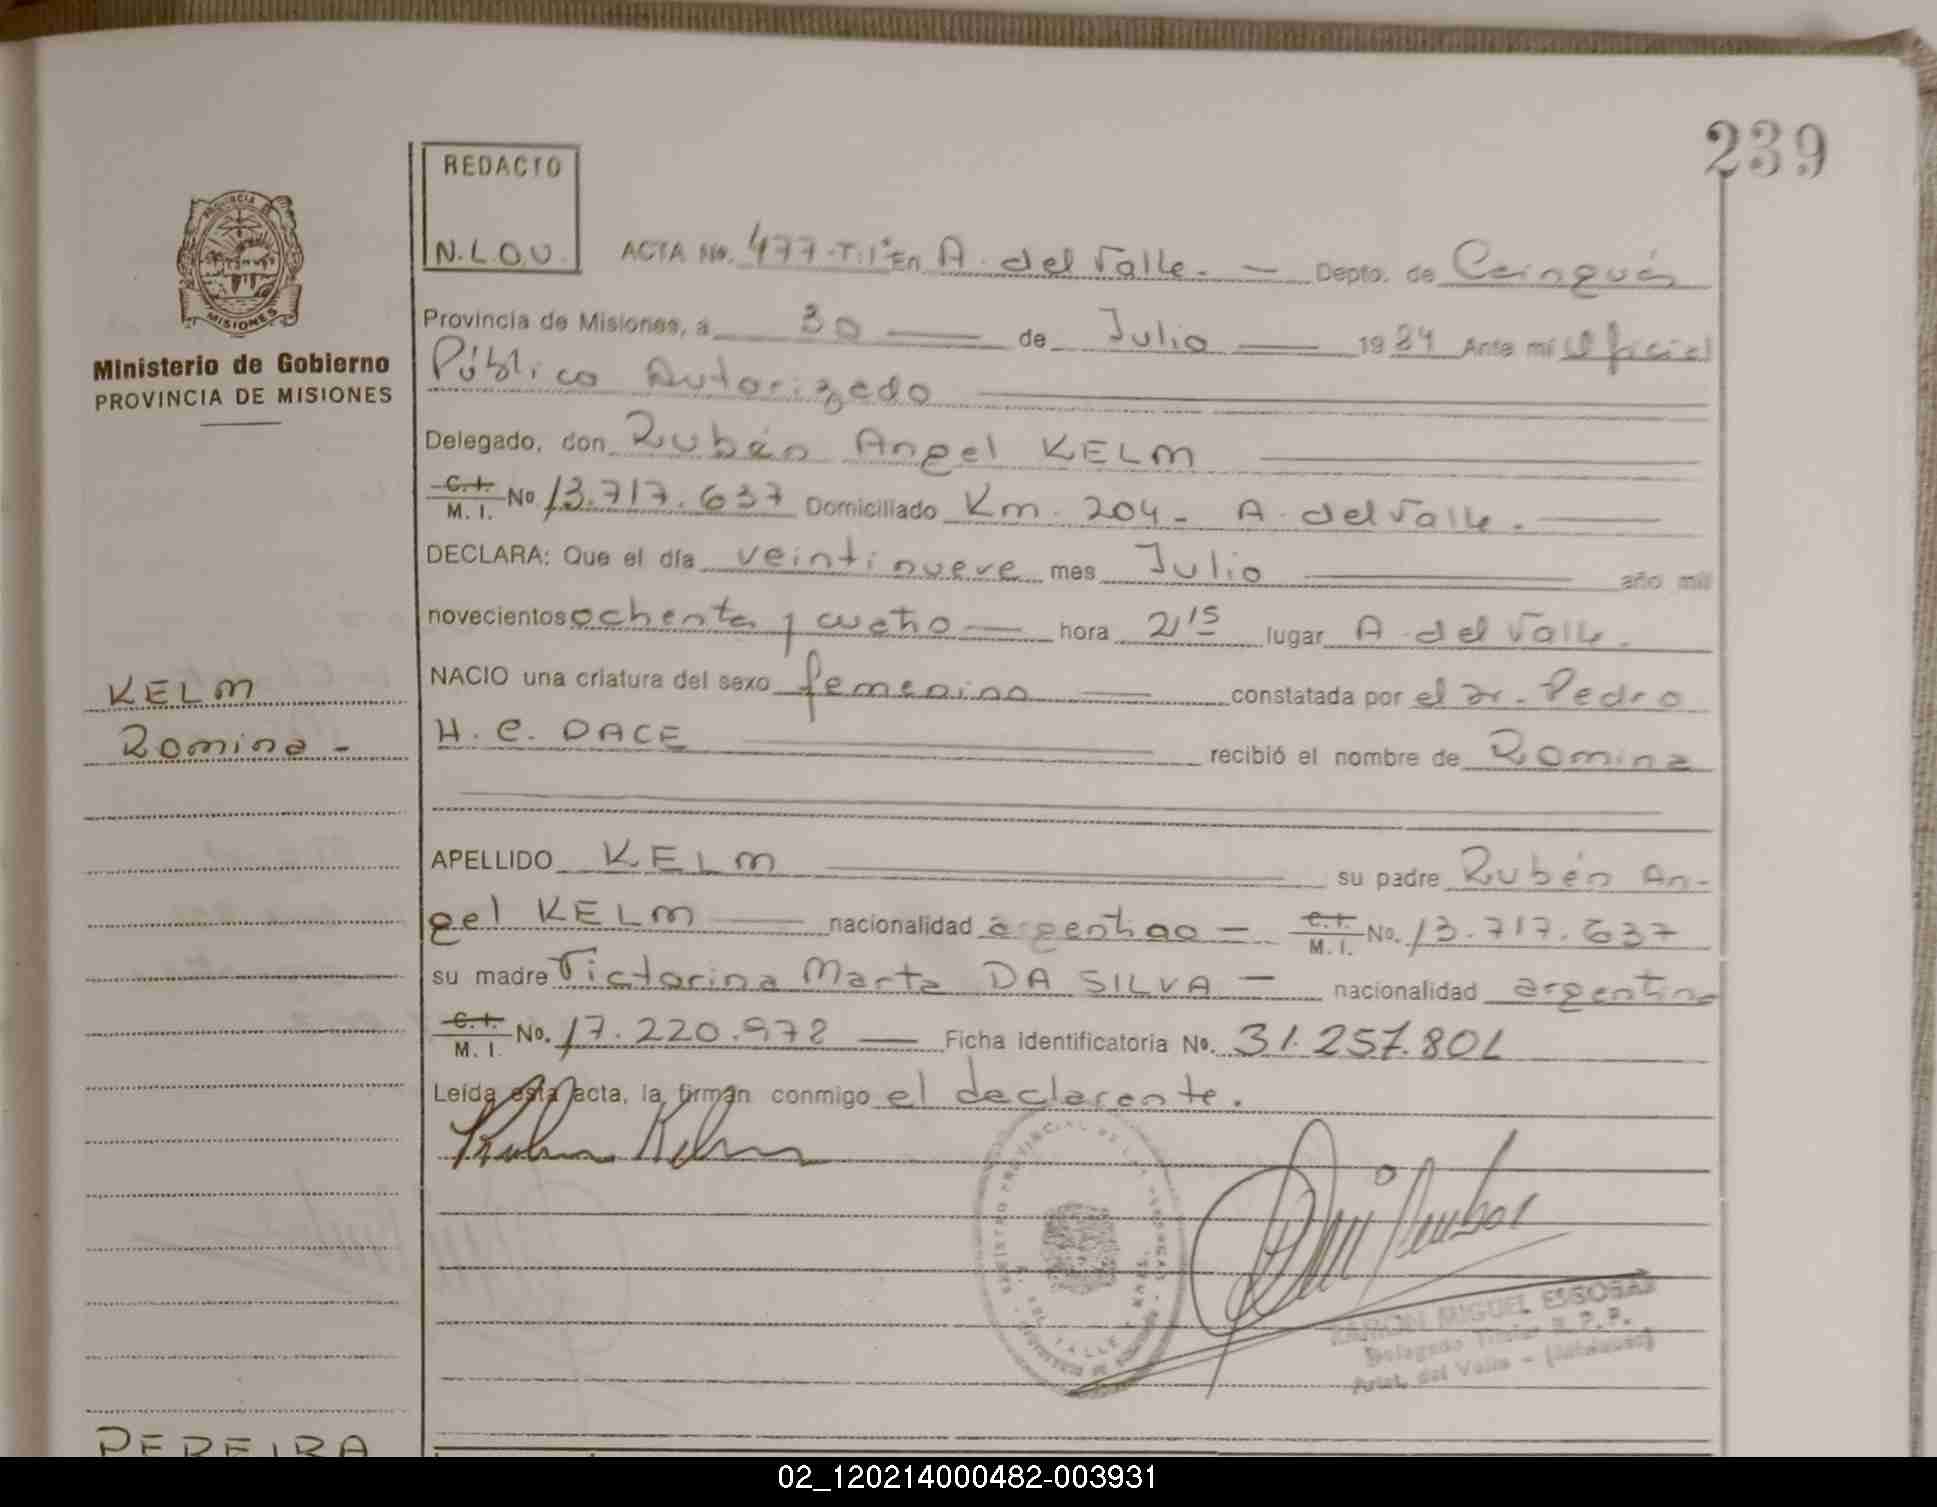 239
REDACTO
N.L.O.V.
PROVINCIA DE
MISIONES
Ministerio de Gobierno
PROVINCIA DE MISIONES
ACTA No. 477-T.1° En A. del Valle. — Depto. de Cainguás
Provincia de Misiones, a 30 — de Julio — 1984 Ante mí Oficial
Público Autorizado
Delegado, don Rubén Angel KELM
C.I. M.I. No 13.717.637 Domiciliado Km. 204 - A. del Valle.
DECLARA: Que el día veintinueve mes Julio año mil
novecientos ochenta y cuatro — hora 21 15 lugar A. del Valle.
NACIO una criatura del sexo femenino — constatada por el Dr. Pedro
H. C. DACE recibió el nombre de Romina
KELM
Romina -
APELLIDO KELM su padre Rubén An-
gel KELM — nacionalidad argentino — C.I. M.I. No. 13.717.637
su madre Victorina Marta DA SILVA — nacionalidad argentina
C.I. M.I. No. 17.220.978 — Ficha identificatoria No. 31.257.801
Leída esta acta, la firman conmigo el declarante.
Rubén Kelm
REGISTRO PROVINCIAL DE LAS PERSONAS
DEL VALLE
RAMON MIGUEL ESCOBAR
Delegado Titular R. P. P.
Arist. del Valle - (Misiones)
PEREIRA
02_120214000482-003931